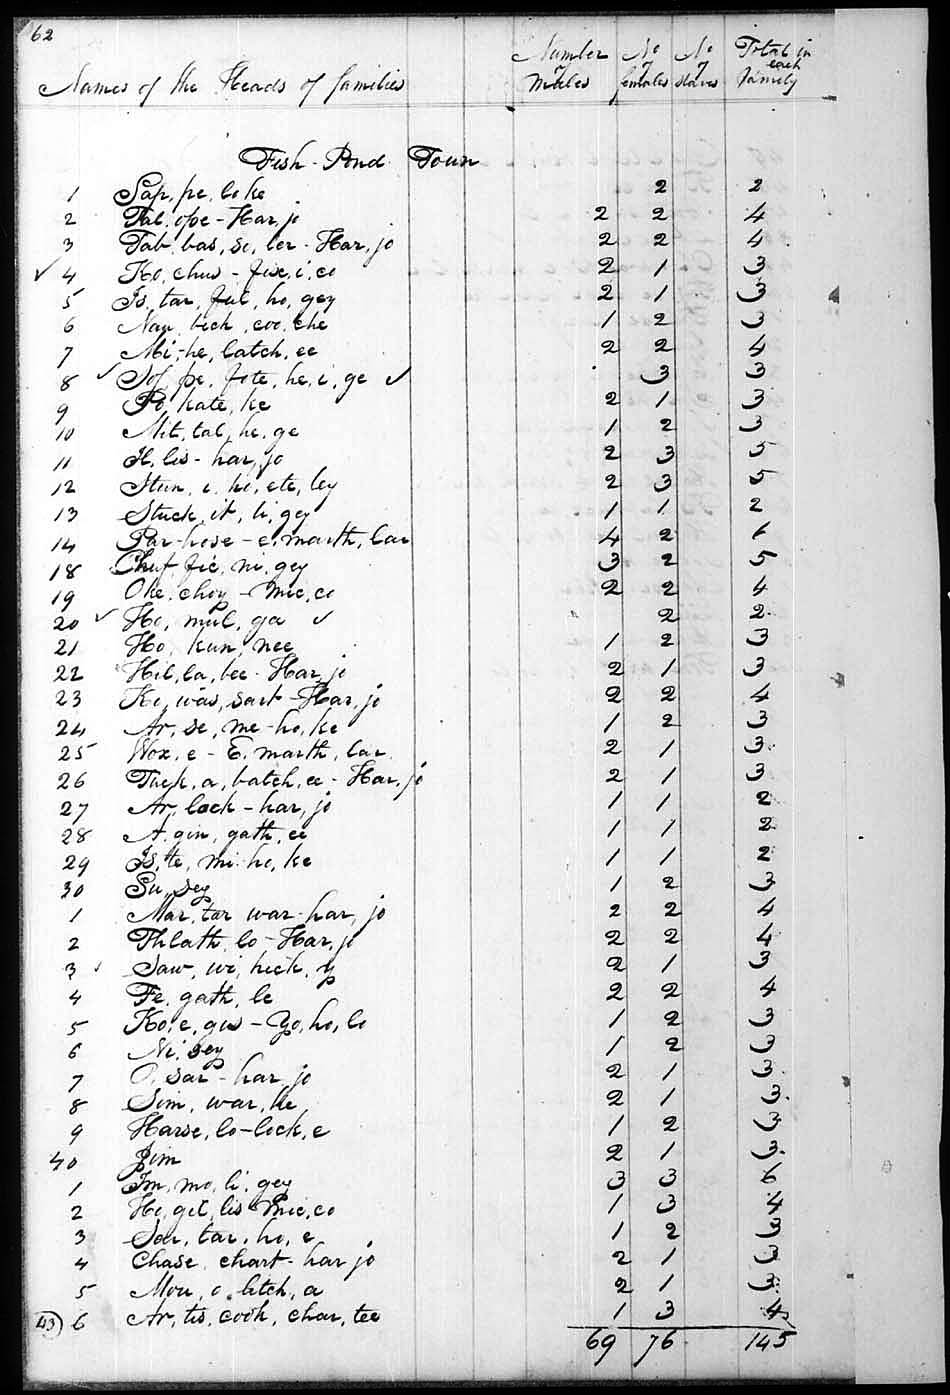 62
Names of the Heads of families Number of Males No of females No of slaves Total in each family
Fish-Pond Town
1 Sap, pe, lo ke 2 2
2 Tal, ope - Har, jo 2 2 4
3 Tab, bas, se, ler - Har, jo 2 2 4
✓ 4 Ko, chus - fix, i, co 2 1 3
5 Is, tar, ful, ho, gey 2 1 3
6 Nau, bick, coo, che 1 2 3
7 Mi, he, latch, ee 2 2 4
8 ✓ Sof, pe, fote, he, i, ge ✓ 3 3
9 Po, kate, ke 2 1 3
10 Mit, tal, he, ge 1 2 3
11 H, lis - har, jo 2 3 5
12 Stun, i, ho, ete, ley 2 3 5
13 Stuck, it, li, gey 1 1 2
14 Par-hose - e, marth, lar 4 2 6
18 Chuf, fic, ni, gey 3 2 5
19 Oke, choy - Mic, co 2 2 4
20 ✓ Ho, mul, ga ✓ 2 2
21 Ho, kun, nee 1 2 3
22 Hil, la, bee - Har, jo 2 1 3
23 Ko, was, sart - Har, jo 2 2 4
24 Ar, se, me-ho, ke 1 2 3
25 Wox, e - E, marth, lar 2 1 3
26 Tuck, a, batch, ee - Har, jo 2 1 3
27 Ar, lock - har, jo 1 1 2
28 A, gin, gath, ee 1 1 2
29 Is, te, mi-ho, ke 1 1 2
30 Su, sey 1 2 3
1 Mar, tar war-har, jo 2 2 4
2 Thlath, lo - Har, jo 2 2 4
3 Saw, wi, heck, y 2 1 3
4 Fe, gath, le 2 2 4
5 Ko, e, gus - Yo, ho, lo 1 2 3
6 Ni, sey 1 2 3
7 O, sar - har, jo 2 1 3
8 Sim, war, ke 2 1 3
9 Harse, lo-lock, e 1 2 3
40 Jim 2 1 3
1 Im, mo, li, gey 3 3 6
2 Ho, gil, lis Mic, co 1 3 4
3 Son, tar, ho, e 1 2 3
4 Chase, chart - har jo 2 1 3
5 Mou, o, litch, a 2 1 3
43 6 Ar, tis, cooh, char, tee 1 3 4
69 76 145